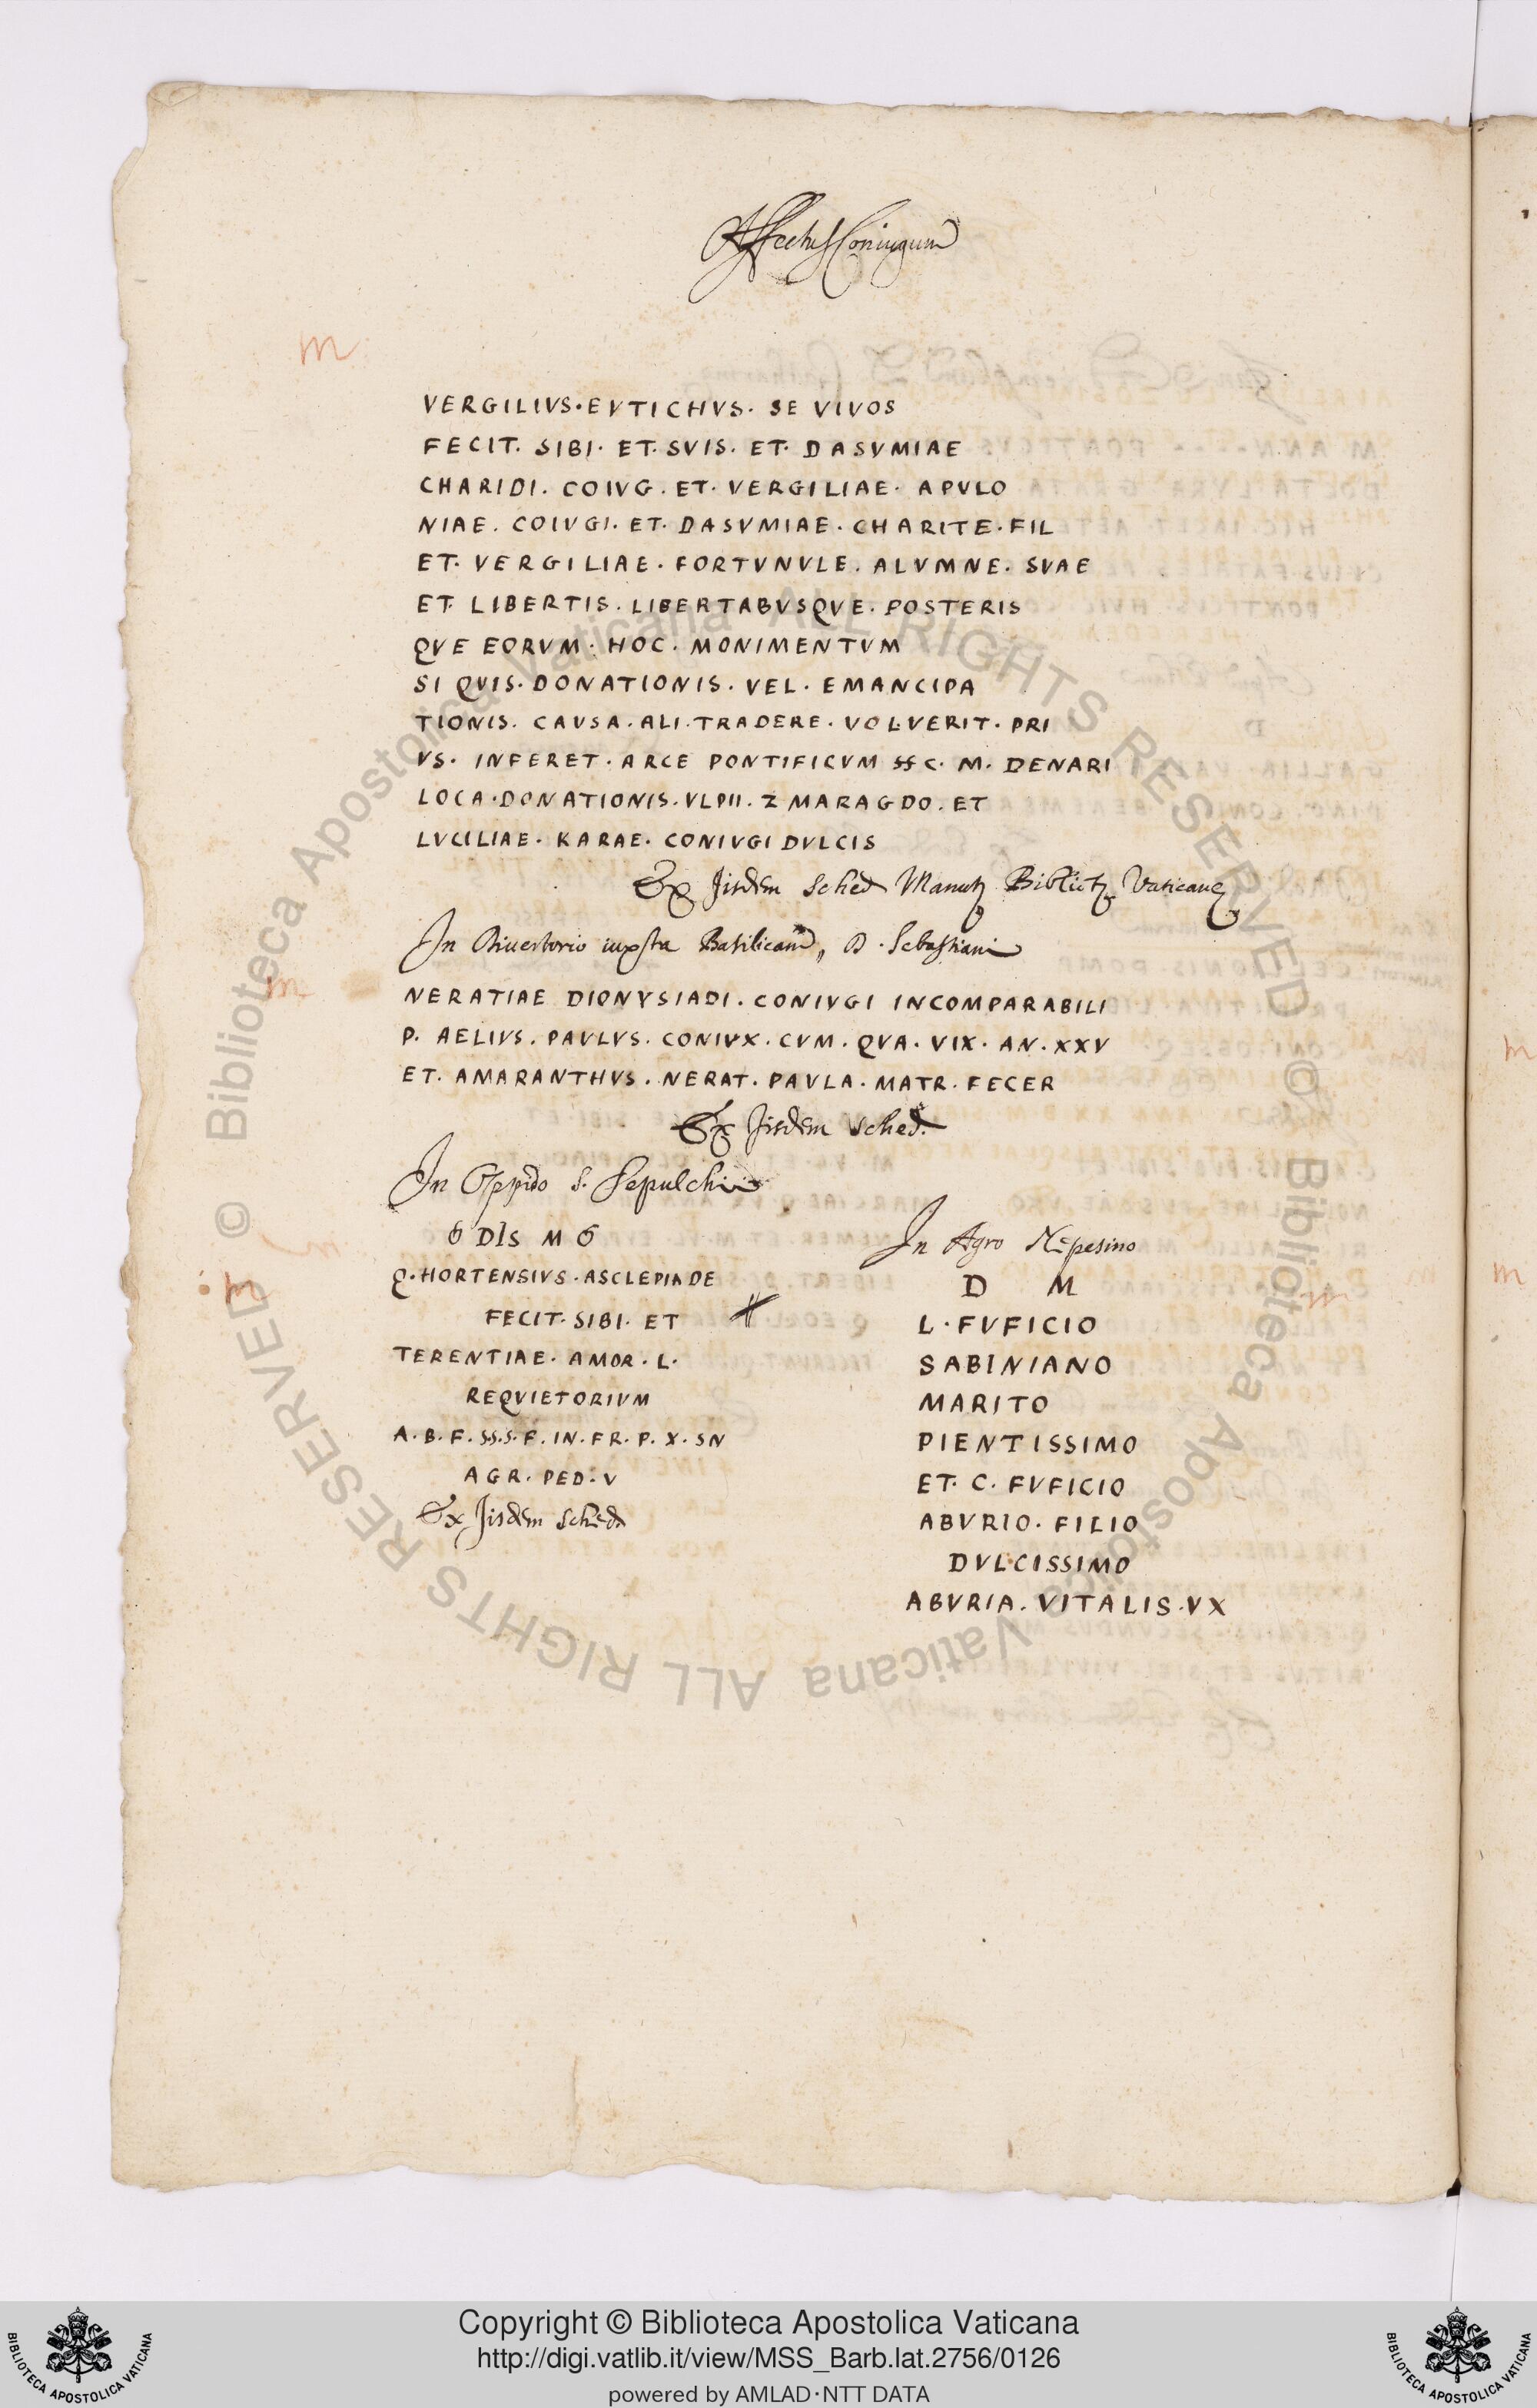 Affectus Coniugum
m
VERGILIVS · EVTICHVS · SE VIVOS
FECIT · SIBI · ET · SVIS · ET · DASVMIAE
CHARIDI · COIVG · ET · VERGILIAE · APVLO
NIAE · COIVGI · ET · DASVMIAE · CHARITE · FIL
ET · VERGILIAE · FORTVNVLE · ALVMNE · SVAE
ET LIBERTIS · LIBERTABVSQVE · POSTERIS
QVE EORVM · HOC · MONIMENTVM
SI QVIS · DONATIONIS · VEL · EMANCIPA
TIONIS · CAVSA · ALI · TRADERE · VOLVERIT · PRI
VS · INFERET · ARCE PONTIFICVM C · M · DENARI
LOCA · DONATIONIS · VLPII · ZMARAGDO · ET
LVCILIAE · KARAE · CONIVGI DVLCIS
Ex Jisdem Sched Manutij Bibliotz Vaticane
In Diuersorio iuxta Basilicam D. Sebastiani
m
NERATIAE DIONYSIADI · CONIVGI INCOMPARABILI
P · AELIVS · PAVLVS · CONIVX · CVM · QVA · VIX · AN · XXV
ET · AMARANTHVS · NERAT · PAVLA · MATR · FECER
Ex Jisdem Sched.
In Oppido S. Sepulchri
DIS M
m
Q · HORTENSIVS · ASCLEPIADE
FECIT · SIBI · ET
TERENTIAE · AMOR · L ·
REQVIETORIVM
A · B · F · SS · S · F · IN · FR · P · X · SN
AGR · PED · V
Ex Jisdem Sched.
In Agro Nepesino
D M
L · FVFICIO
SABINIANO
MARITO
PIENTISSIMO
ET · C · FVFICIO
ABVRIO · FILIO
DVLCISSIMO
ABVRIA · VITALIS · VX
© Biblioteca Apostolica Vaticana ALL RIGHTS RESERVED
© Biblioteca Apostolica Vaticana ALL RIGHTS RESERVED
Copyright © Biblioteca Apostolica Vaticana
http://digi.vatlib.it/view/MSS_Barb.lat.2756/0126
powered by AMLAD·NTT DATA
BIBLIOTECA APOSTOLICA VATICANA
BIBLIOTECA APOSTOLICA VATICANA